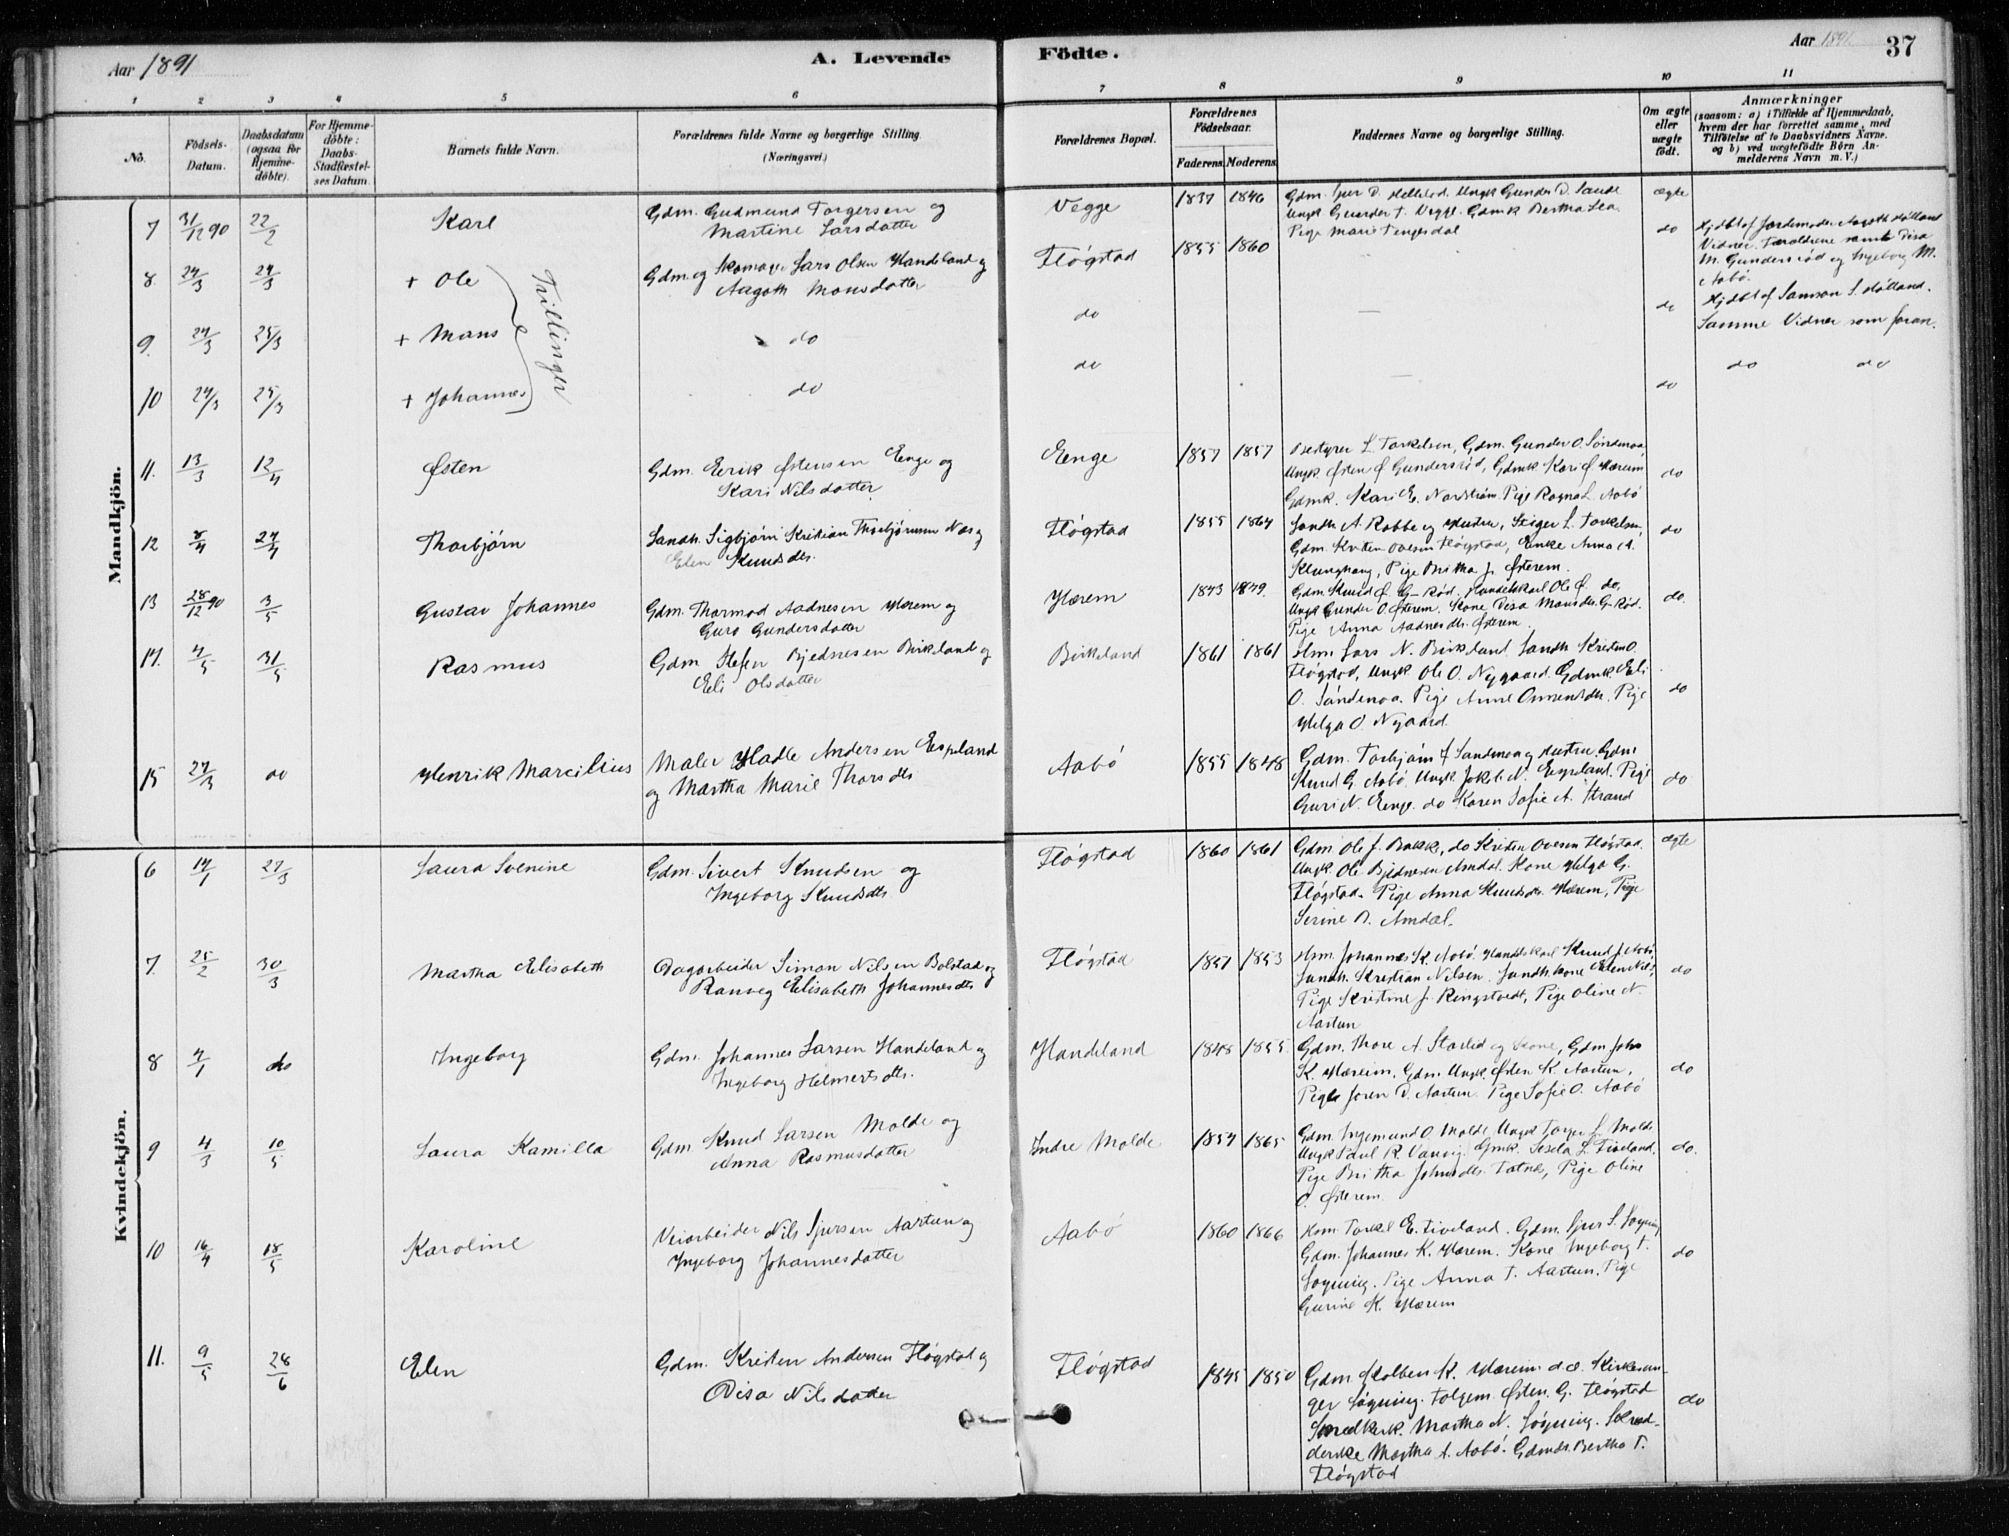 Aar 1891
A. Levende
Födte.
Aar 1891
37
1 2 3 4 5 6 7 8 9 10 11
No.
Födsels-Datum.
Daabsdatum (ogsaa for Hjemme-döbte).
For Hjemme-döbte: Daabs-Stadfæstel-ses Datum.
Barnets fulde Navn.
Forældrenes fulde Navne og borgerlige Stilling. (Næringsvei.)
Forældrenes Bopæl.
Forældrenes Födselsaar.
Faderens. Moderens.
Faddernes Navne og borgerlige Stilling.
Om ægte eller uægte födt.
Anmærkninger
(saasom: a) i Tilfælde af Hjemmedaab, hvem der har forrettet samme, med Tilföielse af to Daabsvidners Navne. og b) ved uægtefödte Börn An-melderens Navn m. V.)
Mandkjön.
7 31/12 90 22/2 Karl
Gdm. Gudmund Torgersen og
Martine Larsdatter
Vegge 1837 1846
Ungk Gunder T. Vegge. Gdmk Bertha
Pige Marie Tengesdal
ægte
8 24/3 24/3 + Ole
Trillinger
Gdm. og Skomager Lars Olsen Handeland og
Aagoth Monsdatter
Fløgstad 1855 1860
do
Hjdbt af Jordemoder Aagoth
Vidner Forældrene samt Disa
M. Gundersrød og Ingeborg M.
Aabø.
9. 24/3 25/3 + Mans
do
do
do
Hjdbt af Samson S.
Samme Vidner som foran.
10 24/3 25/3 + Johannes
do
do
do
do do
11. 13/3 12/4 Østen
Gdm. Eerik Østensen Enge og
Kari Nilsdatter
Eenge 1857 1857
L. Torkelsen, Gdm. Gunder O.
Ungk. Østen Ø Gundersrød, Gdmk Kari Ø. Hærem
Gdmk. Kari E. Nordstrøm. Pige Ragna L. Aabø
do
12 8/4 24/4 Thorbjørn
Sandh. Sigbjørn Kristian Thorbjørnsen Næs og
Elen Knudsdtr.
Fløgstad 1855 1864
A. Robbe og Hustru, Stiger L. Torkelsen,
Gdm. Kristen Ovesen Fløgstad, Enke Anna A.
Klunghaug, Pige Britha J. Østerem.
do
13 28/12 90 3/5 Gustav Johannes
Gdm. Thormod Aadnesen Hærem og
Guro Gundersdatter
Hærem 1843 1849
Gdm. Knud Ø. G-rød. Handelskarl Ole Ø. do,
Ungk Gunder O. Østerem. Kone Disa Monsdtr G-rød.
Pige Anna Aadnesdtr. Østerem.
do.
14. 4/5 31/5 Rasmus
Gdm. Stefen Bjednesen Birkeland og
Eeli Olsdatter
Birkeland 1861 1861
Hm. Lars N. Birkeland Kristen O.
Fløgstad, Ungk Ole O. Nygaard. Gdmk. Eeli
O. Søndenaa. Pige Anne Omundsdtr. Pige
Helga O. Nygaard.
do
15 27/3 do Henrik Marcilius
Maler Hadle Andersen Espeland
og Martha Marie Thorsdtr
Aabø 1855 1848
Gdm. Torbjørn og Hustru. Gdm.
Knud G. Aabø. Ungk Jokob N. Espeland. Pige
Guri N. Eenge. do Karen Sofie A. Strand
do
Kvindekjön.
6 14/1 27/3 Laura Svenine
Gdm. Sivert Knudsen og
Ingeborg Knudsdtr.
Fløgstad 1860 1861
Gdm. Ole J. Bakke, do Kristen Ovesen Fløgstad.
Ungk. Ole Bjednesen Amdal. Kone Helga G.
Fløgstad. Pige Anna Knudsdtr. Hærem, Pige
Serine Amdal.
ægte
7. 25/2 30/3 Martha Elisabeth
Dagarbeider Simon Nilsen Bolstad og
Ranveg Elisabeth Johannesdtr
Fløgstad 1851 1853
Hm. Johannes K. Aabø. Handelskarl Knud J. Aabø,
Sandh. Kristian Nilsen. Sandh.kone Elen
Pige Kristine J. Ringstvedt, Pige Oline N.
Aartun
do
8 4/1 do Ingeborg
Gdm. Johannes Larsen Handeland og
Ingeborg Helmertsdtr.
Handeland 1848 1855.
Gdm. Thore A. Storlid og Kone, Gdm John
K. Hæreim. Gdm. Ungk. Østen K. Aartun,
Pige Joren D. Aartun. Pige Sofie O. Aabø
do
9 4/3 10/5 Laura Kamilla
Gdm Knud Larsen Molde og
Anna Rasmusdatter
Indre Molde 1854 1865
Gdm. Ingemund O. Molde, Ungk Torger L. Molde
Ungk Paul R. Vanvig. Gmk. Sesela L. Tiveland.
Pige Britha Johnsdtr. Totnes, Pige Oline
O. Østerem.
do.
10 16/4 18/5 Karoline
Veiarbeider Nils Sjursen Aartun og
Ingeborg Johannesdatter
Aabø 1860 1866
Hm. Torkel E. Tiveland. Gdm. Sjur S.
Gdm. Johannes K. Hærem. Kone Ingeborg T.
Pige Anna T. Aartun. Pige
Gurine K. Hærem
do
11. 9/5 28/6 Elen
Gdm. Kristen Andersen Fløgstad og
Disa Nilsdatter
Fløgstad 1845 1850
Gdm Kolben K. Hærem. Kirkesan-
ger Søgning. Østen G. Fløgstad
Martha N. Søgning.
Martha A. Aabø. Bertha T.
Fløgstad
do